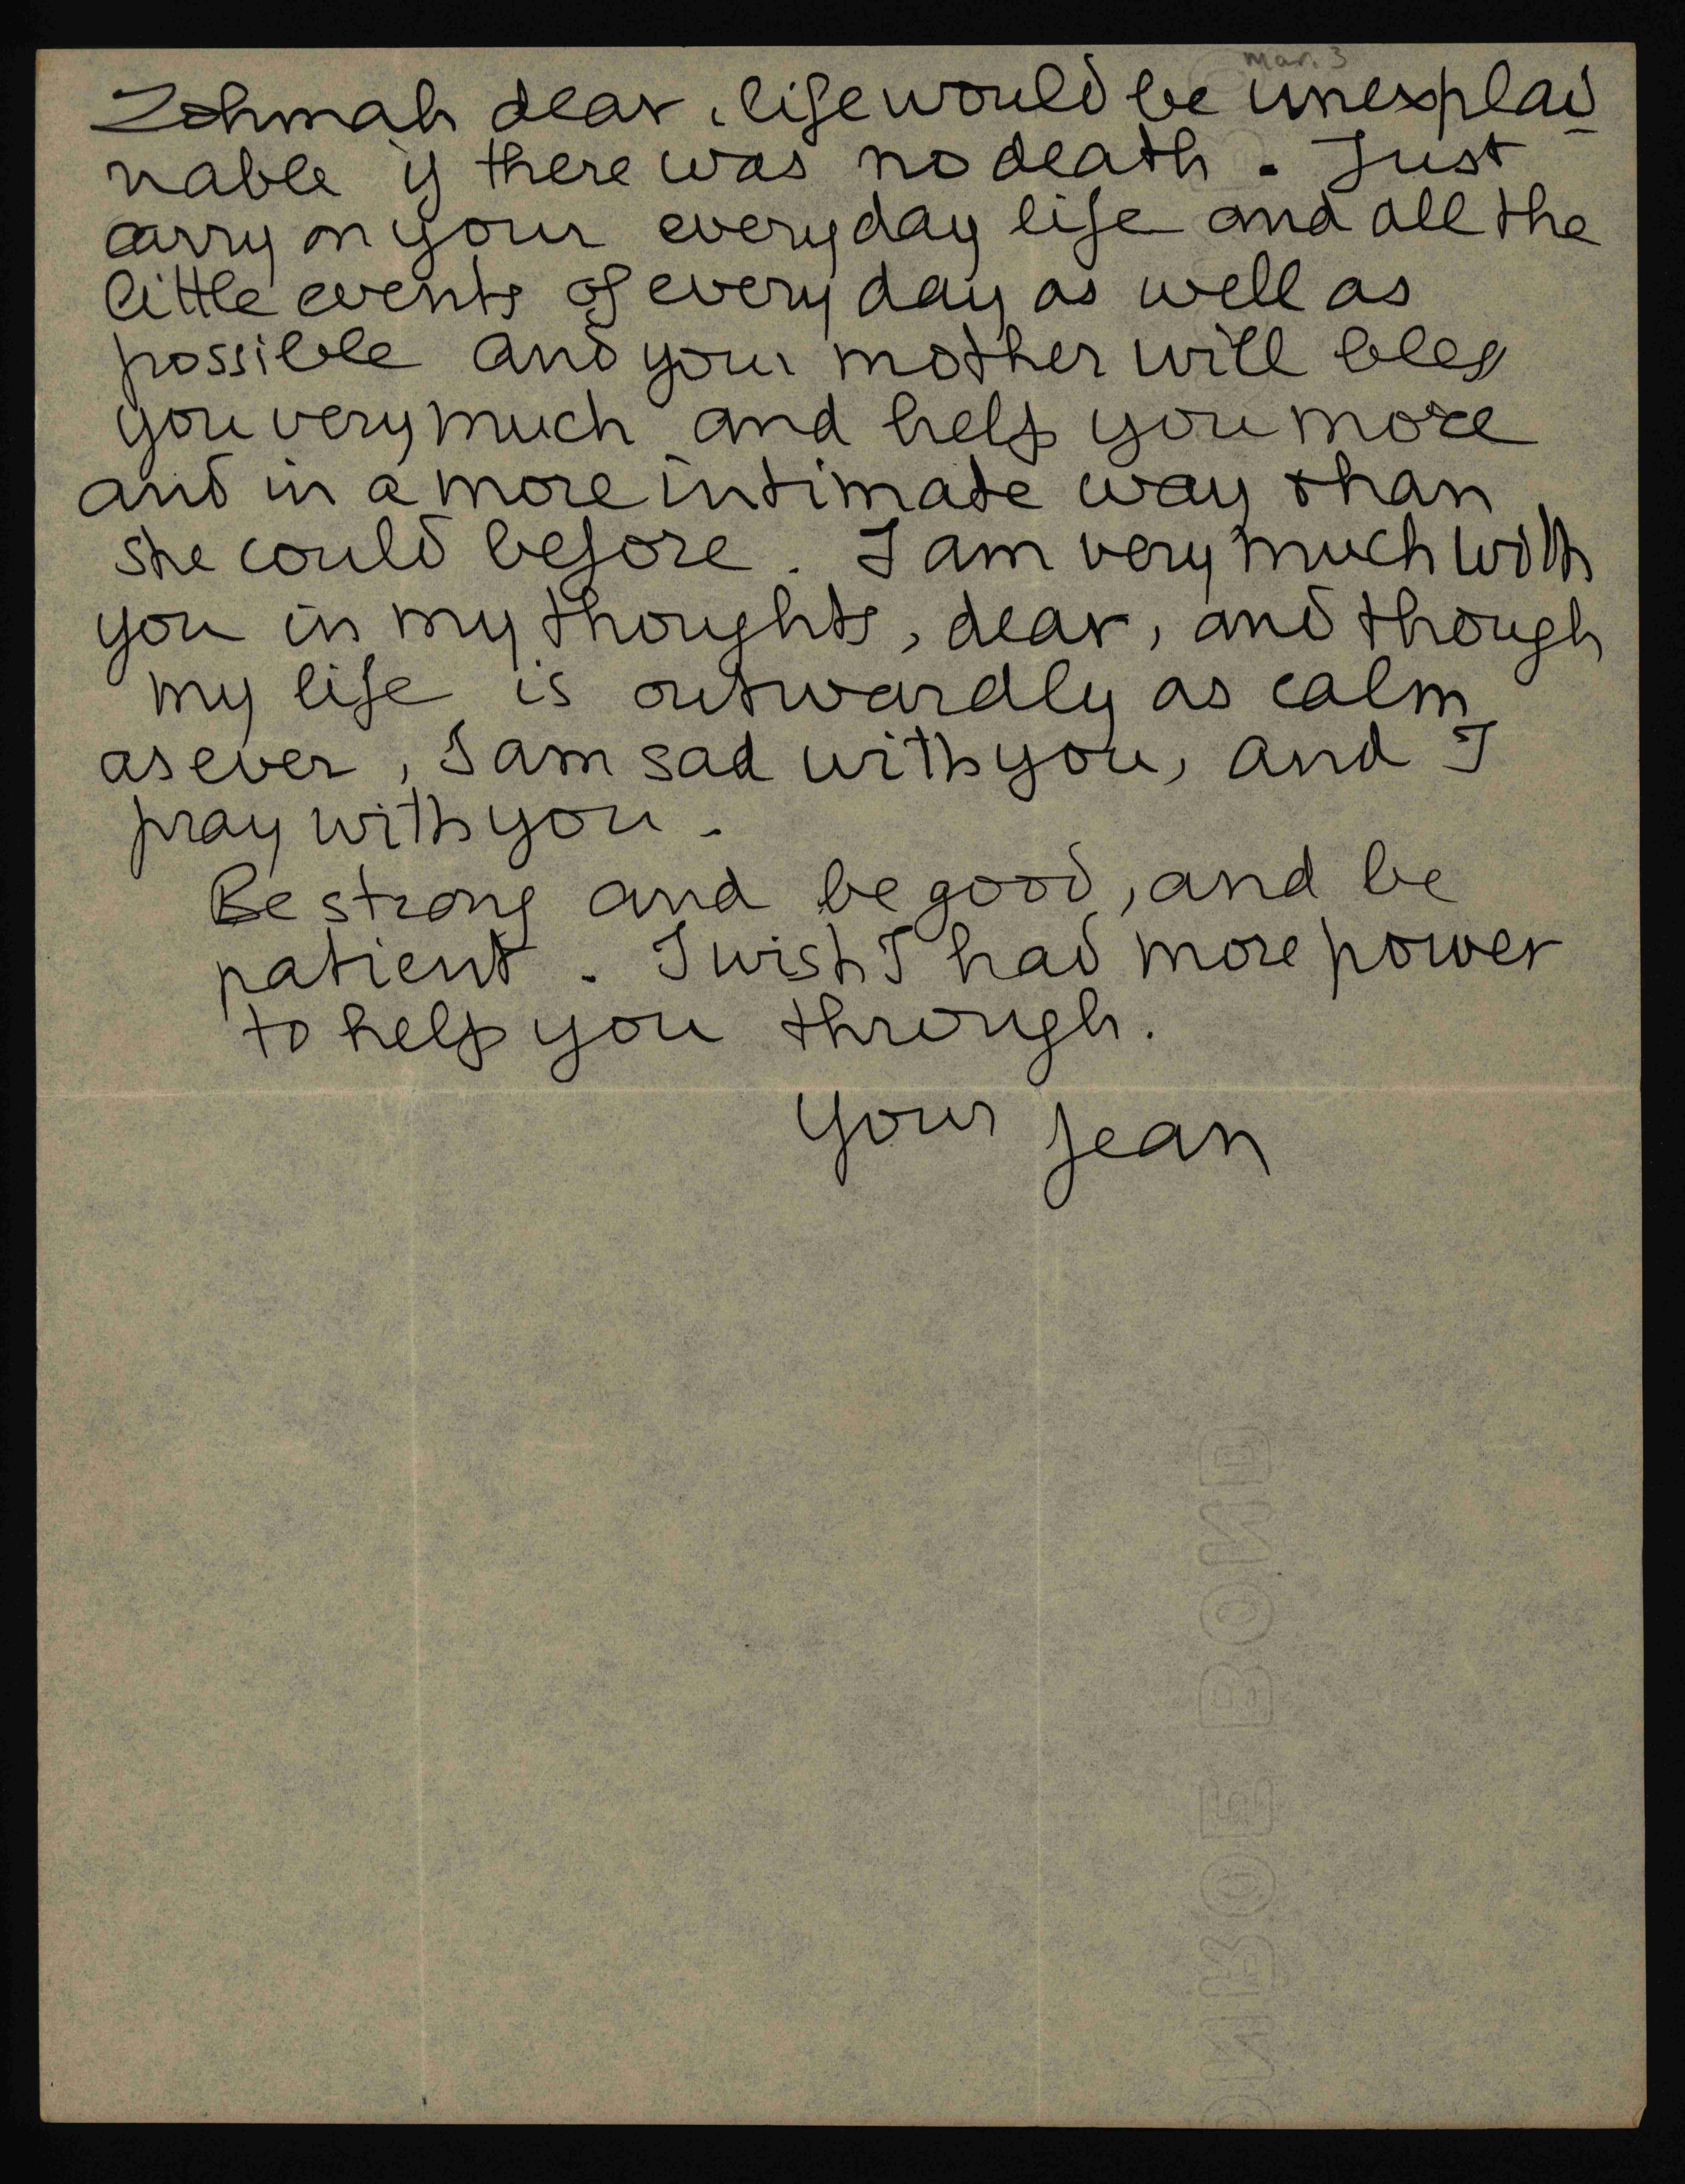 mar. 3
Zohmah dear, life would be unexplai
nable if there was no death. Just
carry on your everyday life and all the
little events of every day as well as
possible and your mother will bless
you very much and help you more
and in a more intimate way than
she could before. I am very much with
you in my thoughts, dear, and though
my life is outwardly as calm
as ever, I am sad with you, and I
pray with you.
Be strong and be good, and be
patient. I wish I had more power
to help you through.
your Jean
BOND